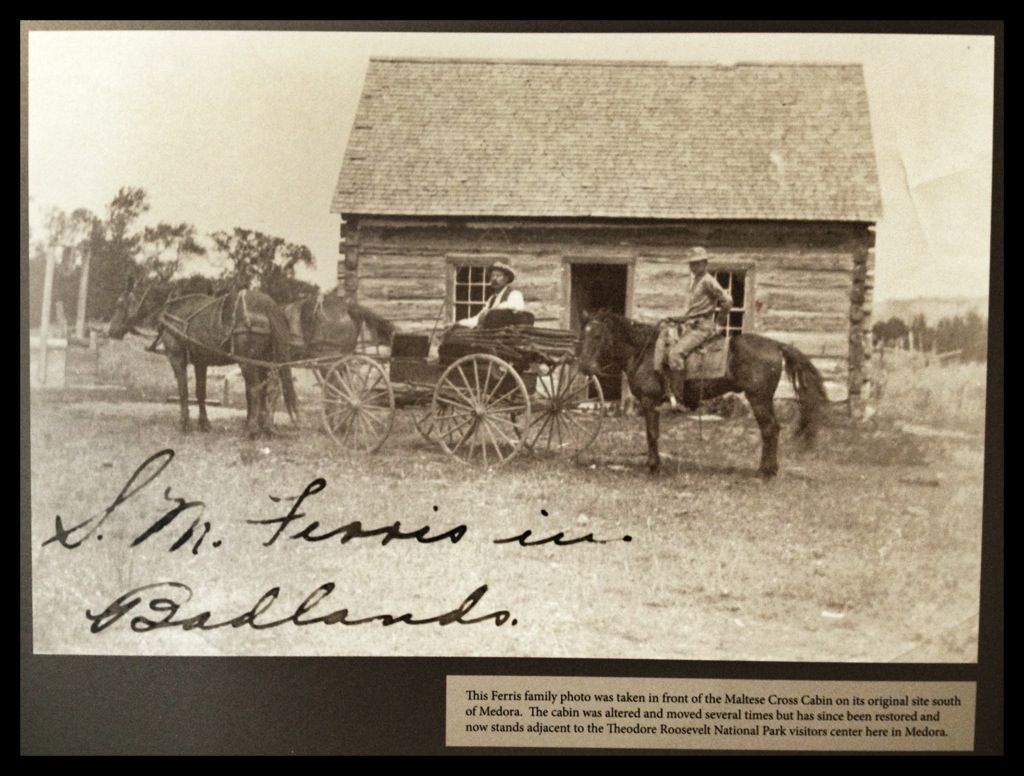 S. M. Ferris in
Badlands.
This Ferris family photo was taken in front of the Maltese Cross Cabin on its original site south
of Medora. The cabin was altered and moved several times but has since been restored and
now stands adjacent to the Theodore Roosevelt National Park visitors center here in Medora.